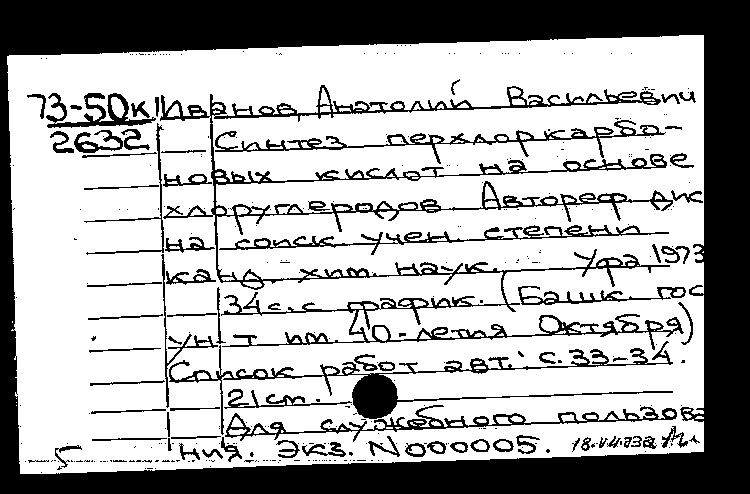 73-50к Иванов, Анатолий Васильевич
2632 Синтез перхлоркарбо-
новых кислот на основе
хлоруглеродов. Автореф. дис
на соиск. учен. степени
канд. хим. наук. Уфа, 1973
34 с. с график. (Башк. гос
ун-т им. 40-летия Октября)
Список работ авт.: с. 33-34.
21 см.
Для служебного пользова
5 ния. Экз. N000005.